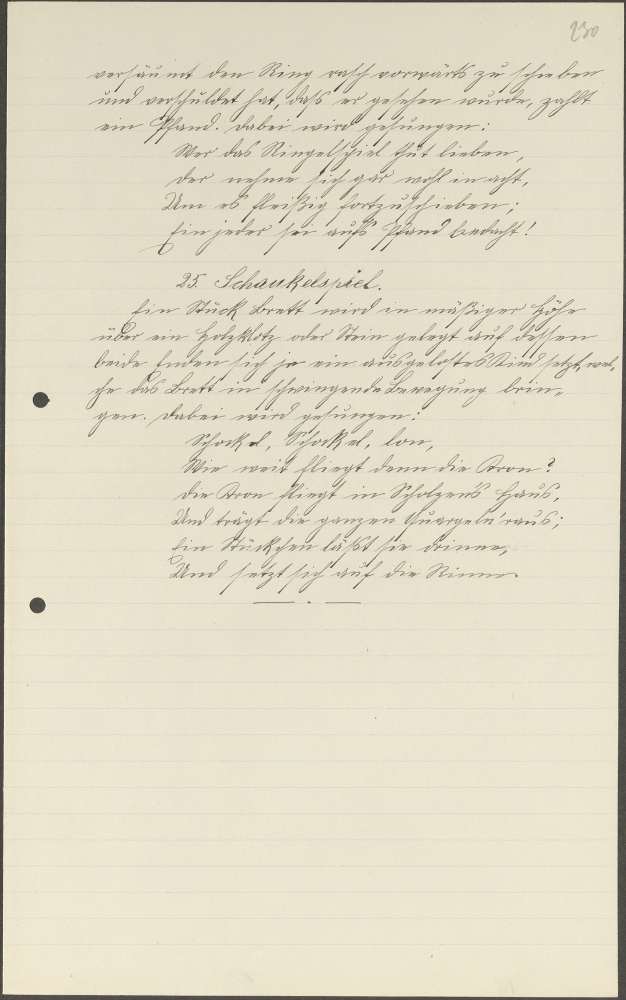 230
versäumt den Ring rasch vorwärts zu schieben
und verschuldet hat, dass er gesehen wurde, zahlt
ein Pfand. Dabei wird gesungen:
Wer das Ringelspiel thut lieben,
Der nehme sich gar wohl in acht,
Um es fleißig fortzuschieben;
Ein jeder sei aufs Pfand bedacht!
25. Schaukelspiel.
Ein Stück Brett wird in mäßiger Höhe
über ein Holzklotz oder Stein gelegt auf dessen
beide Enden sich je ein ausgelostes Kind setzt, wel-
che das Brett in schwingende Bewegung brin-
gen. Dabei wird gesungen:
Schockel, Schockel, lon,
Wie weit fliegt denn die Kron?
Die Kron fliegt in Scholzen's Haus,
Und trägt die ganzen Quargeln 'raus;
Ein Stückchen läßt sie drinne,
Und setzt sich auf die Rinne.